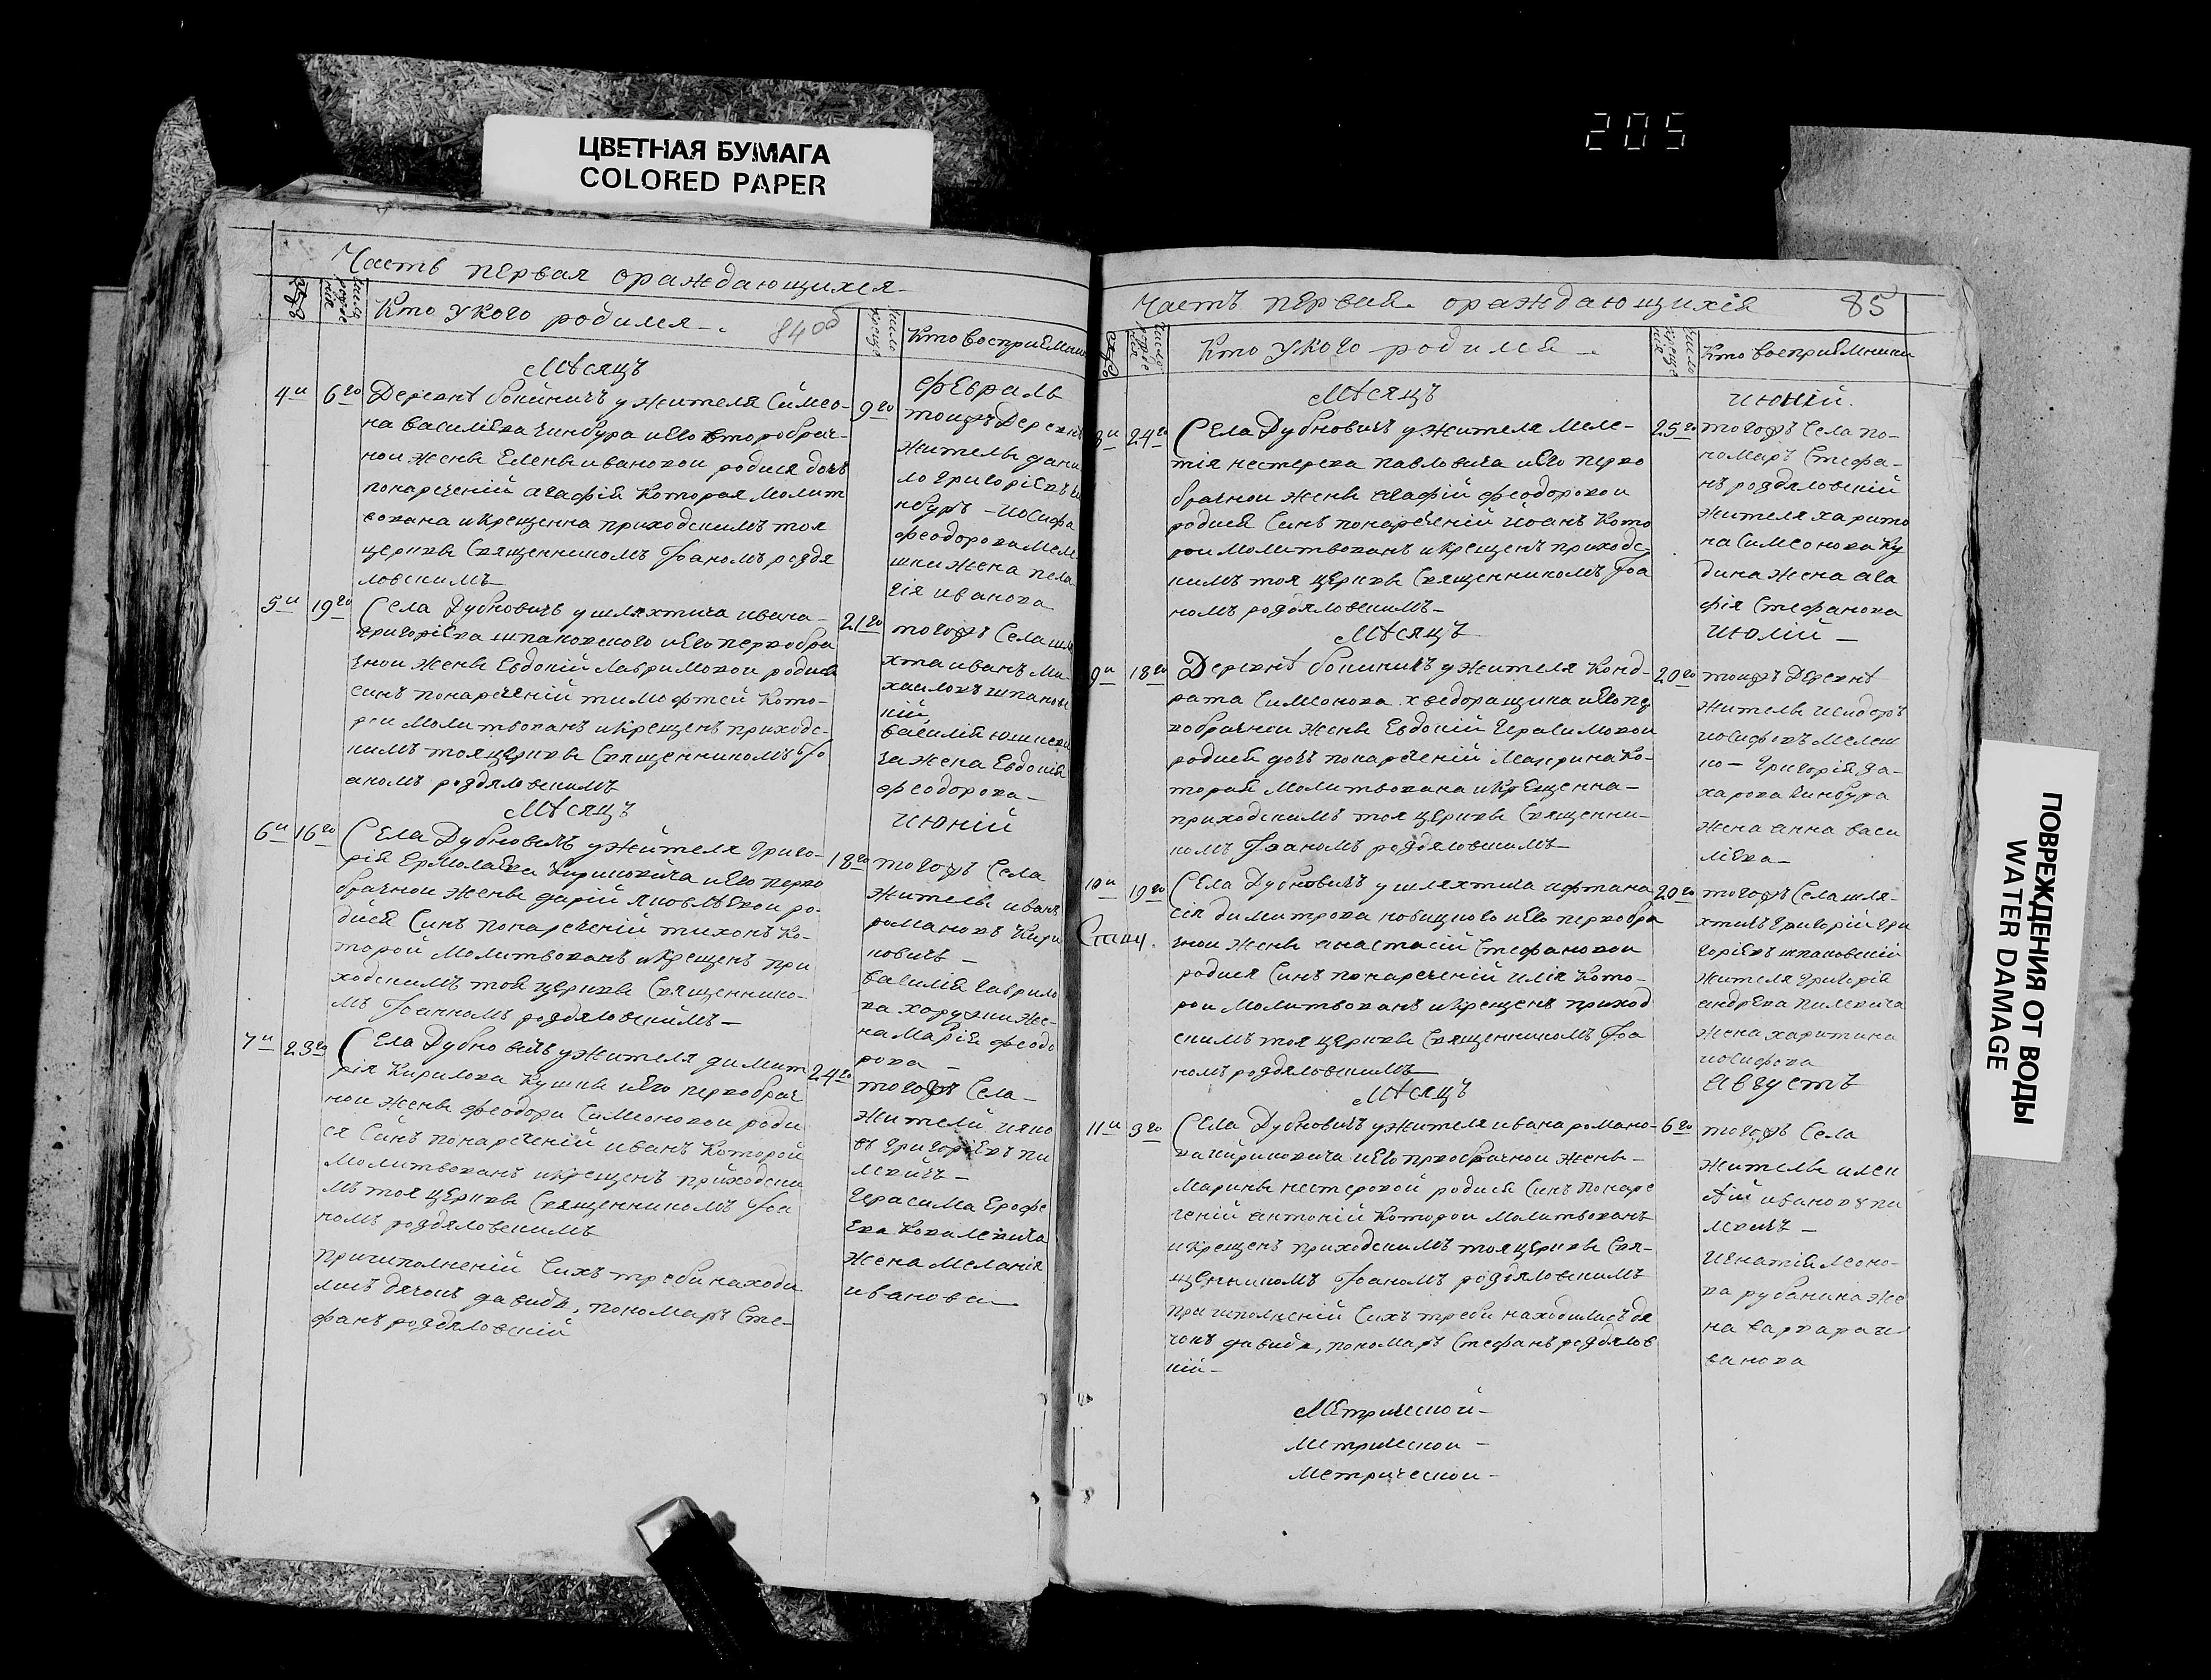 205
ЦВЕТНАЯ БУМАГА
COLORED PAPER
ПОВРЕЖДЕНИЯ ОТ ВОДЫ
WATER DAMAGE
Часть первая ораждающихся
Кто укого родился
84об
Кто восприемни
Мѣсяцъ
февраль
4и 6го
Деревнѣ бокиничъ ужителя Симео-
на василіева гинбура иего второбрач-
нои жены Елены ивановои родися дочь
понареченій агафія которая молит
вована икрещенна приходскимъ тоя
церкви священникомъ Іоаномъ роздя
ловскимъ
9го
тоижъ деревнѣ
житель дани
ло григоріевъ
нбуръ - иосифа
феодорова меле
шки жена пела
гія иванова
5и 19го
Села Дубновичъ ушляхтича ивана
григоріева шпаковского иего первобра
чнои жены Евдокій лавримовои родися
синъ понареченій тимофтей кото-
рои молитвованъ икрещенъ приходс-
кимъ тоя церкви священникомъ Іо
аномъ роздяловскимъ
21го
тогожъ села шля
хта иванъ ми
хаиловъ шпаковс
кій
василія юшкеви
ча жена Евдокія
феодорова
Мѣсяцъ
июній
6и 16го
Села Дубновичъ ужителя григо-
рія Ермолаева Кириковича иего перво
брачнои жены дарій яковлѣвои ро-
дися синъ понареченій тихонъ ко-
торой молитвованъ икрещенъ при
ходскимъ тоя церкви священнико-
мъ Іоанномъ роздяловскимъ
18го
тогожъ села
житель иванъ
романовъ Кири
ковичъ
василія гаврило
ва харужки же-
на марія феодо
рова
7и 23го
Села Дубновичъ ужителя димит
рія Кирилова Кушнѣ иего первобрач
нои жены феодори симеоновои роди
ся синъ понареченій иванъ которой
молитвованъ икрещенъ приходски
мъ тоя церкви священникомъ Іоа
номъ роздяловскимъ
при исполненій сихъ треби находи
лись дячокъ давидъ, пономаръ сте-
фанъ роздяловскій
24го
тогожъ села
жители яко
въ григоріевъ пи
левичъ
герасима Ерофе
Ева Ковалевича
жена меланія
иванова
Часть первая ораждающихся
85
Кто укого родился
Кто восприемники
Мѣсяцъ
июній
8и 24го
Села Дубновичъ ужителя меле-
тія нестерева павловича иего перво
брачнои жены агафій феодоровои
родися синъ понареченій иоанъ кото
рои молитвованъ икрещенъ приходс-
кимъ тоя церкви священникомъ Іоа
номъ роздяловскимъ
25го
тогожъ села по-
номаръ стефа-
нъ роздяловскій
жителя харито
на симеонова Ку
дина жена ага
фія стефанова
Мѣсяцъ
июлій
9и 18го
Деревнѣ бокиничъ ужителя Конд-
рата симеонова хведоращика иего пер
вобрачнои жены Евдокій герасимовои
родися дочь понареченій макрина ко-
торая молитвована икрещенна
приходскимъ тоя церкви священни-
комъ Іоаномъ роздяловскимъ
20го
тоижъ деревнѣ
житель исидоръ
иосифовъ мелеш
ко - григорія за-
харова гинбура
жена анна васи
ліева
10и 19го
Села Дубновичъ ушляхтича афтана-
сія димитрова новицкого иего первобра
чнои жены анастасій стефановои
родися синъ понареченій илія кото-
рои молитвованъ икрещенъ приход
скимъ тоя церкви священникомъ Іоа
номъ роздяловскимъ
20го
тогожъ села шля-
хтичъ григорій гри
горіевъ шпаковскій
жителя григорія
андрева пилевича
жена харитина
иосифова
Мѣсяцъ
Августъ
11и 3го
Села Дубновичъ ужителя ивана романо-
ва кириковича иего првобрачнои жены
марины нестеровой родися синъ понаре
ченій антоній которои молитвованъ
икрещенъ приходскимъ тоя церкви свя-
щенникомъ Іоаномъ роздяловскимъ
при исполненій сихъ треби находились дя
чокъ давидъ, пономаръ стефанъ роздяловс
кій
6го
тогожъ села
житель алек
ѣй ивановъ пи
левичъ
игнатія леоно-
ва рубанина же
на варвара и
ванова
Метрической
метрической
метрической